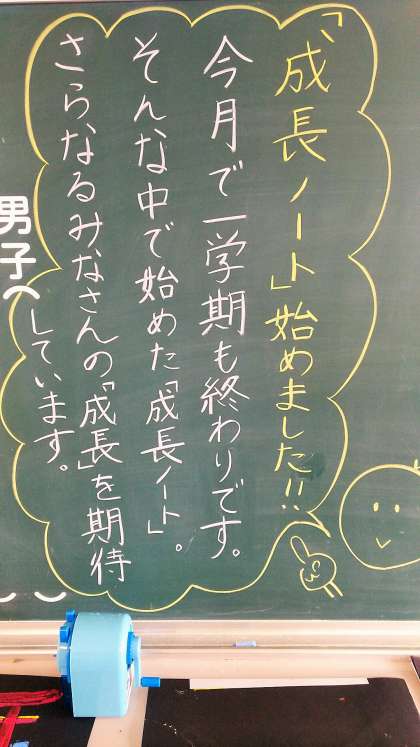 「成長ノート」始めました!!
今月で一学期も終わりです。
そんな中で始めた「成長ノート」。
さらなるみなさんの「成長」を期待
しています。
男子へ